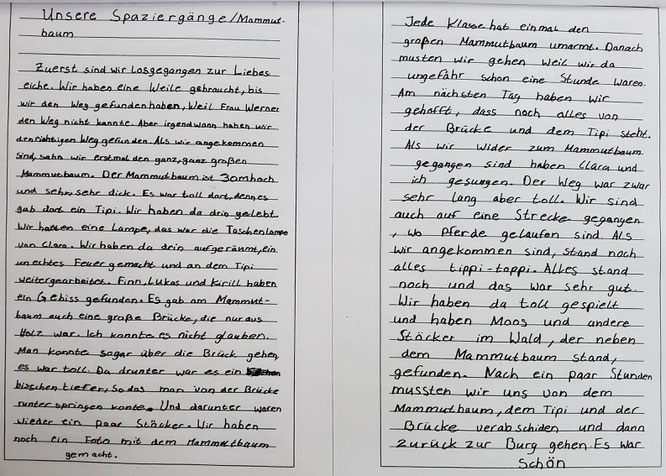 Unsere Spaziergänge/Mammut-
baum
Zuerst sind wir losgegangen zur Liebes
eiche. Wir haben eine Weile gebraucht, bis
wir den Weg gefunden haben, Weil Frau Werner
den Weg nicht kannte. Aber irgendwann haben wir
den richtigen Weg gefunden. Als wir angekommen
sind, sahn wir erstmal den ganz, ganz großen
Mammutbaum. Der Mammutbaum ist 30m hoch
und sehr, sehr dick. Es war toll dort, denn es
gab dort ein Tipi. Wir haben da drin gelebt.
Wir hatten eine Lampe, das war die Taschenlampe
von Clara. Wir haben da drin aufgeräumt, ein
unechtes Feuer gemacht und an dem Tipi
weitergearbeitet. Finn, Lukas und Kirill haben
ein Gebiss gefunden. Es gab am Mammut-
baum auch eine große Brücke, die nur aus
Holz war. Ich konnte es nicht glauben.
Man konnte sogar über die Brück gehen,
es war toll. Da drunter war es ein
bisschen tiefer, so das man von der Brücke
runter springen konte. Und darunter waren
wieder ein paar Stöcker. Wir haben
noch ein Foto mit dem Mammutbaum
gemacht.
Jede Klasse hat einmal den
großen Mammutbaum umarmt. Danach
musten wir gehen weil wir da
ungefähr schon eine Stunde waren.
Am nächsten Tag haben wir
gehofft, dass noch alles von
der Brücke und dem Tipi steht.
Als wir wider zum Mammutbaum
gegangen sind haben Clara und
ich gesungen. Der Weg war zwar
sehr lang aber toll. Wir sind
auch auf eine Strecke gegangen
, wo Pferde gelaufen sind. Als
wir angekommen sind, stand noch
alles tippi-toppi. Alles stand
noch und das war sehr gut.
Wir haben da toll gespielt
und haben Moos und andere
Stöcker im Wald, der neben
dem Mammutbaum stand,
gefunden. Nach ein paar Stunden
mussten wir uns von dem
Mammutbaum, dem Tipi und der
Brücke verabschiden und dann
zurück zur Burg gehen. Es war
Schön